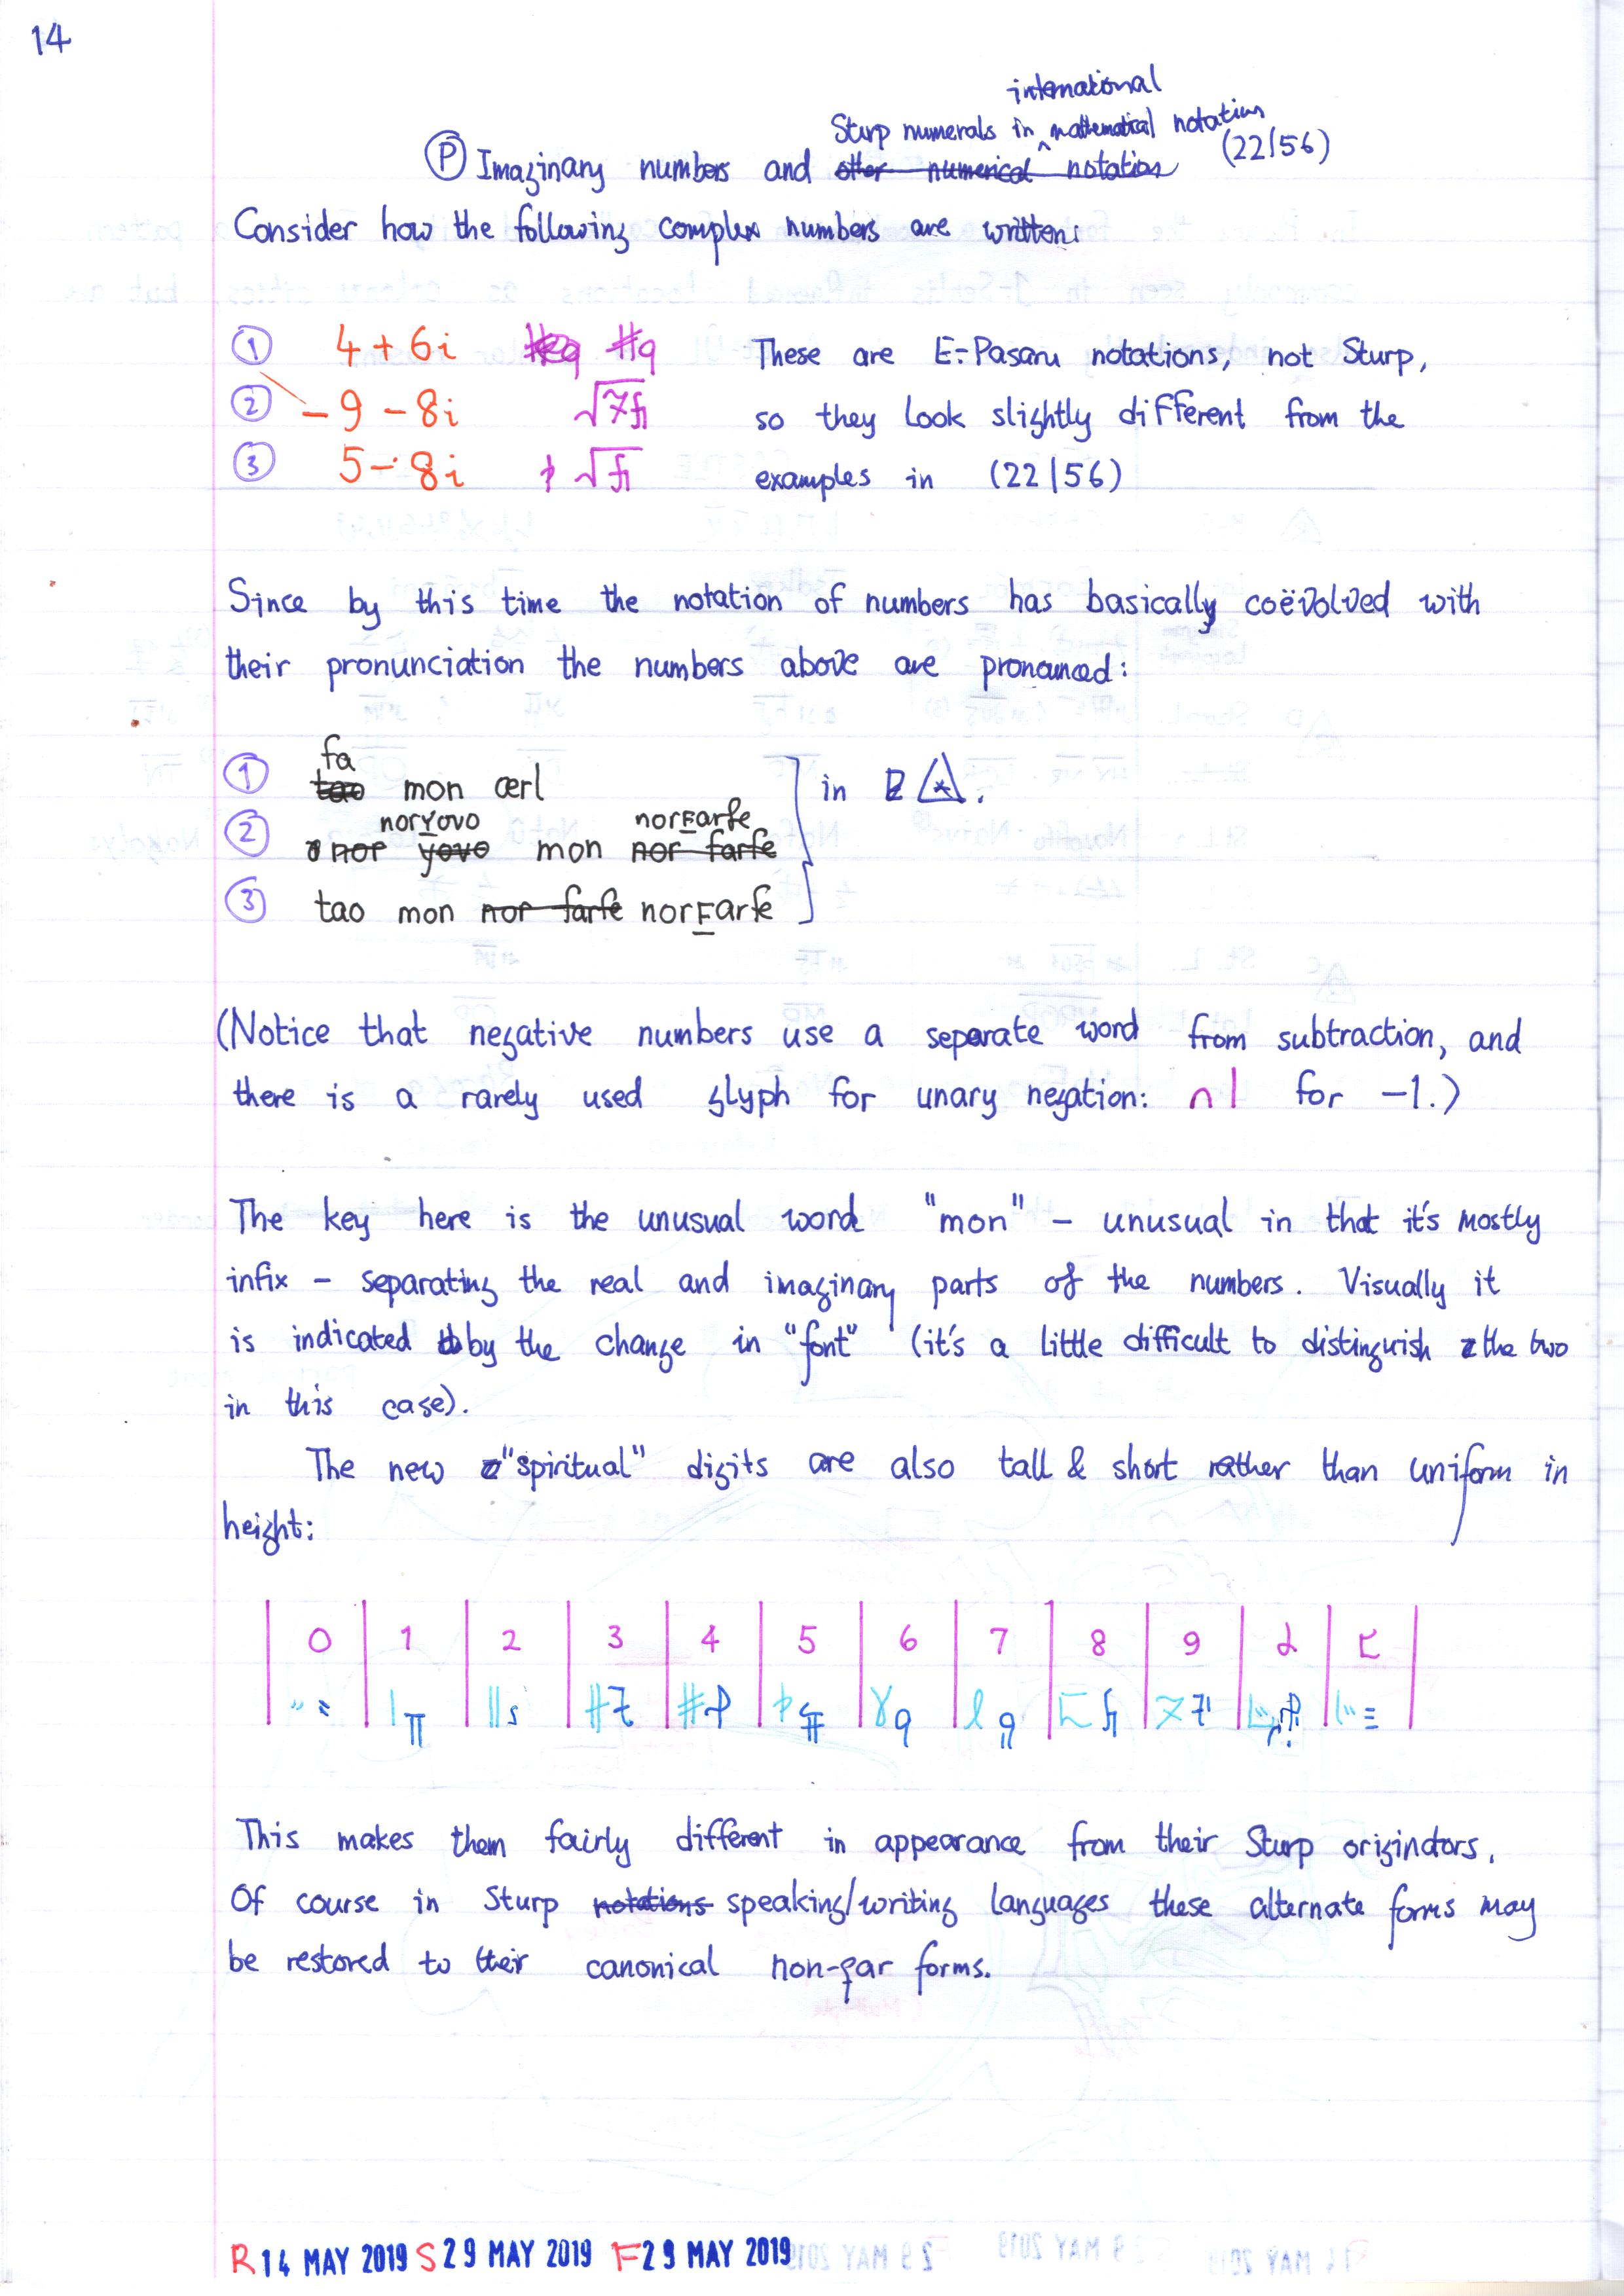 14
international
Sturp numerals in mathematical notation
Ⓟ Imaginary numbers and other numerical notation (22|56)
Consider how the following complex numbers are written:
① 4 + 6i #q These are E.-Pasaru notations, not Sturp,
② -9 - 8i so they look slightly different from the
③ 5 - 8i examples in (22|56)
Since by this time the notation of numbers has basically coëvolved with
their pronunciation the numbers above are pronounced:
fa
① tao mon œrl in
norYovo norFarfe
② nor yovo mon nor farfe
③ tao mon nor farfe norFarfe
(Notice that negative numbers use a separate word from subtraction, and
there is a rarely used glyph for unary negation: ∩| for -1.)
The key here is the unusual word "mon" - unusual in that it's mostly
infix - separating the real and imaginary parts of the numbers. Visually it
is indicated by the change in "font" (it's a little difficult to distinguish the two
in this case).
The new "spiritual" digits are also tall & short rather than uniform in
height:
0 1 2 3 4 5 6 7 8 9
This makes them fairly different in appearance from their Sturp originators.
Of course in Sturp notations speaking/writing languages these alternate forms may
be restored to their canonical non-qar forms.
R 14 MAY 2019 S 29 MAY 2019 F 29 MAY 2019